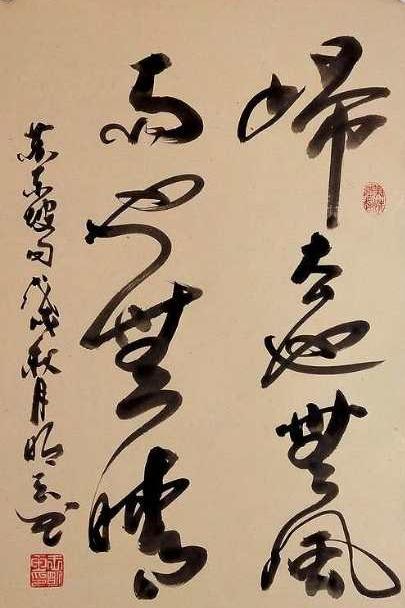 歸去也無風
雨也無晴
蘇東坡句戊戌秋月明書